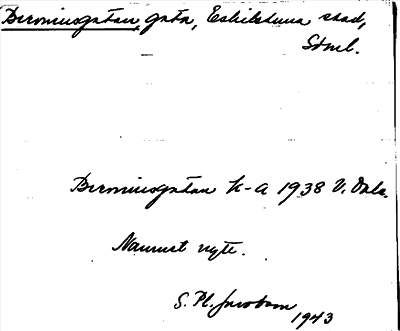 Beroniusgatan, gata, Eskilstuna stad,
Sdml.
Beroniusgatan k-a 1938 V. Dala.
Namnet nytt.
S. Pl. Jacobson
1943